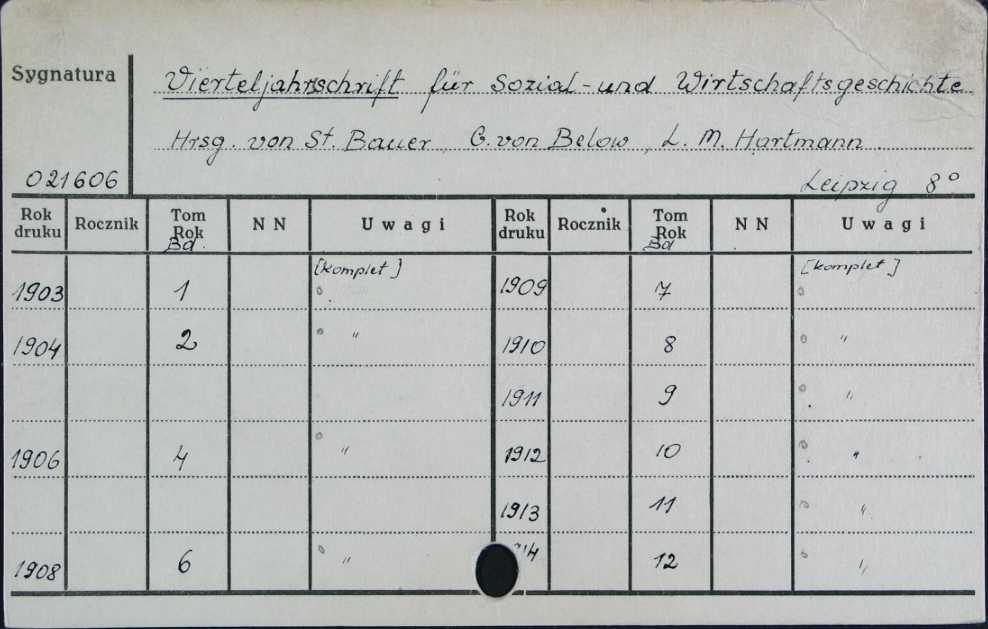 Sygnatura
Vierteljahrsschrift für Sozial- und Wirtschaftsgeschichte
Hrsg. von St. Bauer, G. von Below, L. M. Hartmann.
021606
Leipzig 8°
Rok druku Rocznik Tom Rok Bd. NN Uwagi Rok druku Rocznik Tom Rok Bd NN Uwagi
1903 1 [komplet] 1909 7 [komplet]
1904 2 " 1910 8 "
1911 9 "
1906 4 " 1912 10 "
1913 11 "
1908 6 " 14 12 "